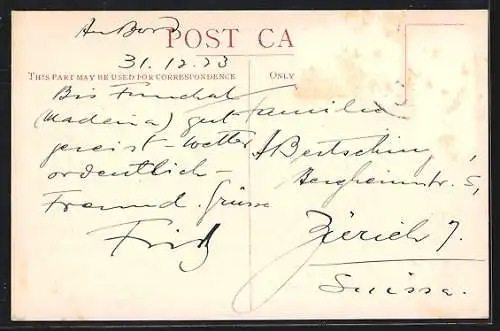 An Bord
POST CA
31.12.23
THIS PART MAY BE USED FOR CORRESPONDENCE
ONLY
Bis Funchal
(Madeira) gut
gereist - Wetter
ordentlich -
Freundl. Grüsse
Fritz
Familie
A Bertschinger
Bergheimstr. 5,
Zürich 7.
Suissa.